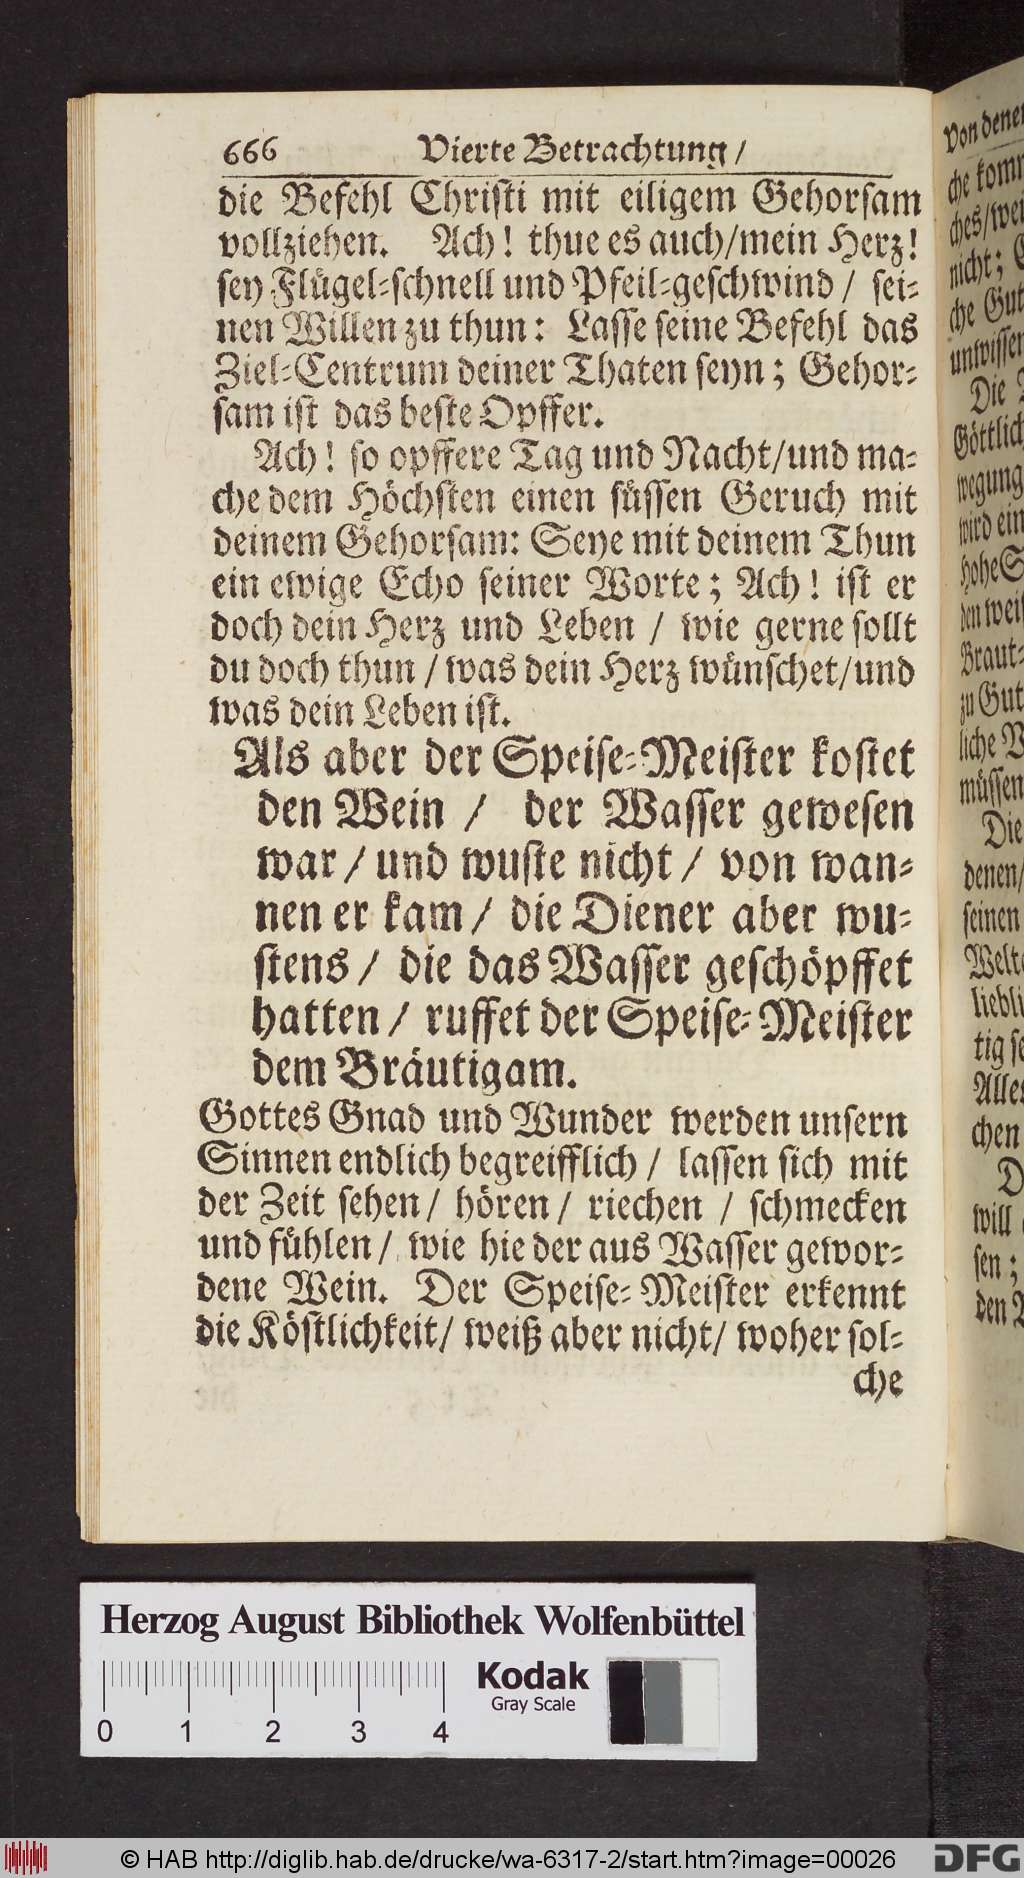 666 Vierte Betrachtung /
die Befehl Christi mit eiligem Gehorsam
vollziehen. Ach! thue es auch/mein Herz!
sey Flügel-schnell und Pfeil-geschwind / sei-
nen Willen zu thun: Lasse seine Befehl das
Ziel-Centrum deiner Thaten seyn; Gehor-
sam ist das beste Opffer.
Ach! so opffere Tag und Nacht/und ma-
che dem Höchsten einen süssen Geruch mit
deinem Gehorsam: Seye mit deinem Thun
ein ewige Echo seiner Worte; Ach! ist er
doch dein Herz und Leben / wie gerne sollt
du doch thun / was dein Herz wünschet/und
was dein Leben ist.
Als aber der Speise-Meister kostet
den Wein / der Wasser gewesen
war / und wuste nicht / von wan-
nen er kam / die Diener aber wu-
stens / die das Wasser geschöpffet
hatten / ruffet der Speise-Meister
dem Bräutigam.
Gottes Gnad und Wunder werden unsern
Sinnen endlich begreifflich / lassen sich mit
der Zeit sehen / hören / riechen / schmecken
und fühlen / wie hie der aus Wasser gewor-
dene Wein. Der Speise-Meister erkennt
die Köstlichkeit/ weiß aber nicht/ woher sol-
che
von denen
che
ches/
nicht;
che Gut
unwissen
Die
Göttlich
wegung
wird ein
hohe
den
Braut-
zu Gut
liche
müssen
Die
denen/
seinen
Welt
liebli
tig
Alles
chen
will
sen;
den
Herzog August Bibliothek Wolfenbüttel
Kodak
Gray Scale
0 1 2 3 4
© HAB http://diglib.hab.de/drucke/wa-6317-2/start.htm?image=00026
DFG